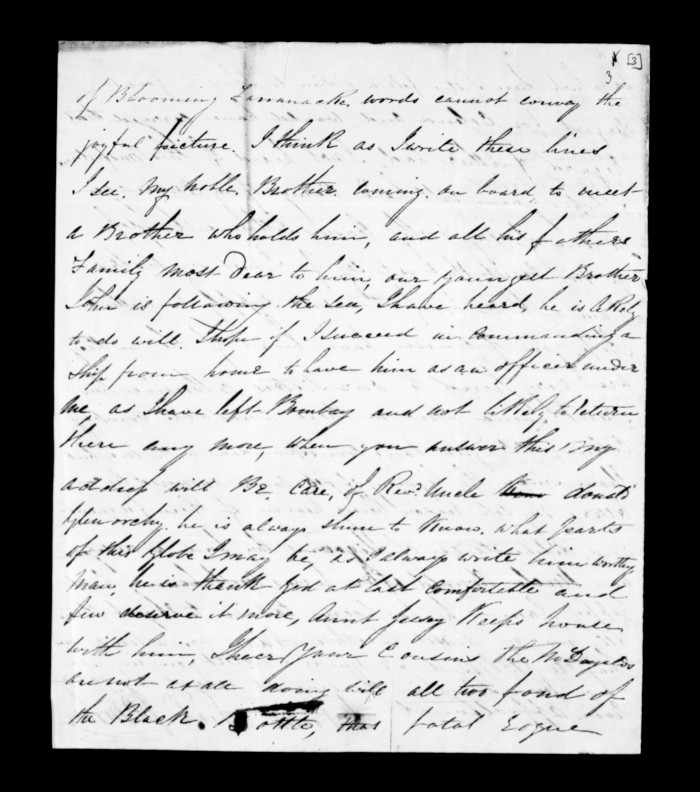 [3]
3
of Blooming Tarranacke, words cannot convay the
joyful picture. I think as I write these lines
I see. My noble. Brother. coming. on board to meet
a Brother who holds him, and all his fathers
Family most Dear to him, our youngest Brother
John is following the sea, I have heard, he is likely
to do will. I hope if I succeed in commanding a
ship from home to have him as an officer under
me, as I have left Bombay and not likely to return
there any more, when you answer this my
address will Be. Care, of Revd. Uncle donald
Glenorchy. he is always shure to know. what parts
of this Globe I may be, as I always write him worthy
man, he is thank God at last comfortable and
few deserve it more, Aunt Jussy Keeps house
with him, I hear your Cousins the
are not at all doing will all two fond of
the Black. Bottle, that fatal Rogue